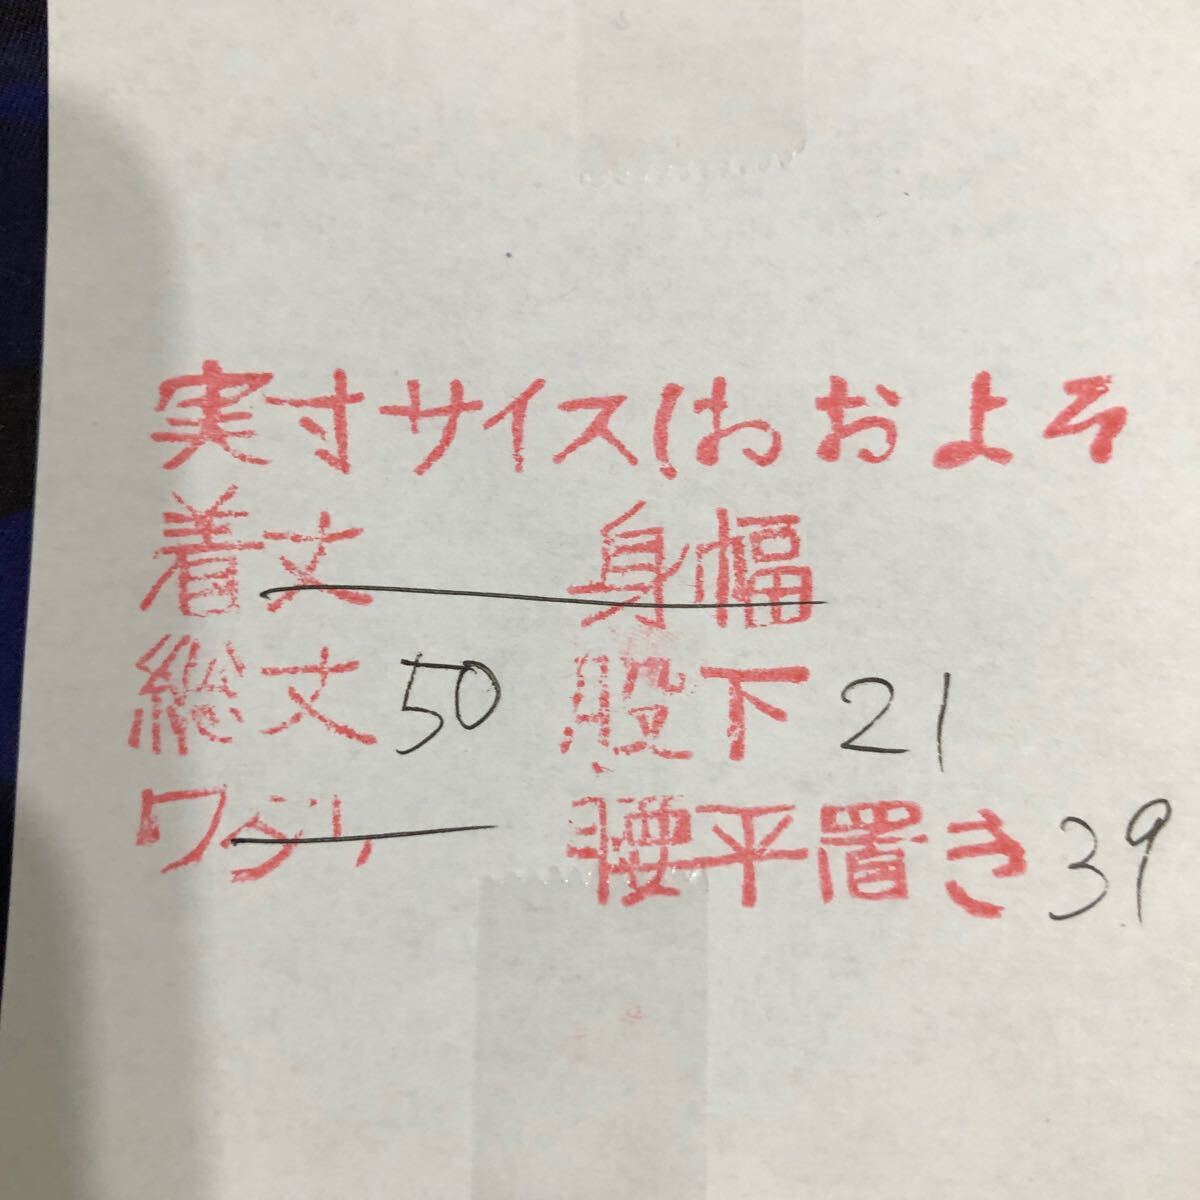 実寸サイズはおおよそ
着丈 身幅
総丈 50 股下 21
ワタリ 腰平置き 39